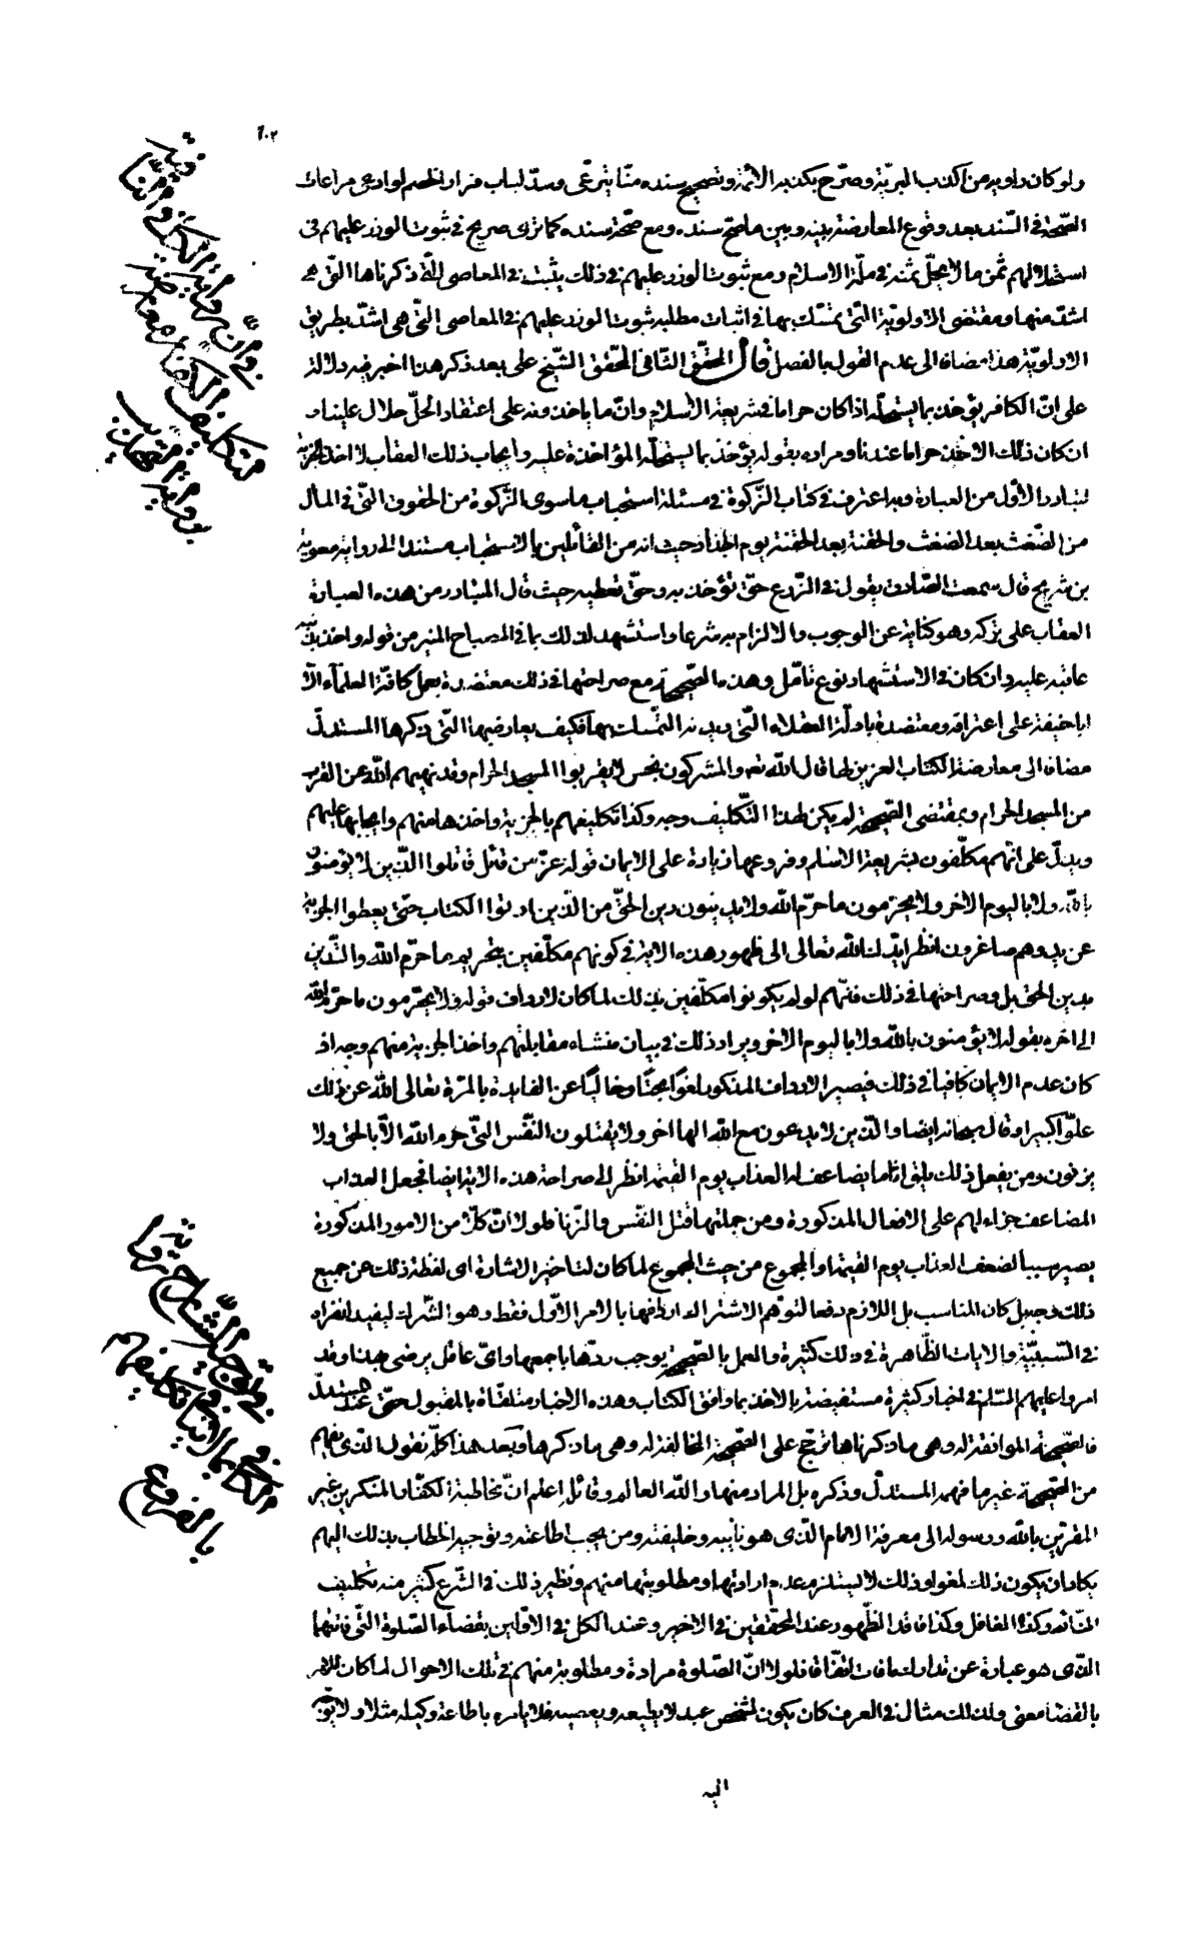 ١٠٢
ولو كان راويه من اكذب البريّة وصرّح بكذبه الأئمة وتصحيح سنده منّا تبرّعى وسدّ لباب فرار الخصم لو ادعى مراعات
الصّحة فى السّند بعد وقوع المعارضة بينه وبين ما صحّ سنده ومع صحّة سنده كما ترى صريح فى ثبوت الوزر عليهم فى
استحلالهم ثمن ما لا يحلّ ثمنه فى ملّة الاسلام ومع ثبوت الوزر عليهم فى ذلك يثبت فى المعاصى الّتى ذكرناها الّتى هى
اشدّ منها ومقتضى الاولويّة الّتى يتمسّك بها فى اثبات مطلبه ثبوت الوزر عليهم فى المعاصى الّتى هى اشدّ بطريق
الاولويّة هذا مضافا الى عدم القول بالفصل قال المحقّق الثّانى المحقّق الشّيخ على بعد ذكر هذا الخبر فيه دلالة
على انّ الكافر يؤخذ بما يستحلّه اذا كان حراما فى شريعة الأسلام وانّ ما ياخذونه على اعتقاد الحلّ حلال علينا و
ان كان ذلك الاخذ حراما عندنا ومراده بقوله يؤخذ بما يستحلّه المؤاخذة عليه وايجاب ذلك العقاب لا اخذ الجزية
لتبادر الأول من العبارة وبه اعترف فى كتاب الزّكوة فى مسئلة استحباب ما سوى الزّكوة من الحقوق الّتى فى المال
من الضّغث بعد الضغث والحفنة بعد الحفنة يوم الجذاذ حيث انه من القائلين بالاستحباب مستندا الى رواية معوية
بن شريح قال سمعت الصّادق يقول فى الزّرع حقّ تؤخذ به وحقّ تعطيه حيث قال المتبادر من هذه العبارة
العقاب على تركه وهو كناية عن الوجوب والالزام به شرعا واستشهد لذلك بما فى المصباح المنير من قوله واخذ بذنبه
عاقبه عليه وان كان فى الاستشهاد نوع تامّل وهذه الصّحيحة مع صراحتها فى ذلك معتضدة بعمل كافّة العلمآء الّا
ابا حنيفة على اعترافه ومعتضدة بادلّة العقلاء الّتى التمسّك بها فكيف يعارضها الّتى ذكرها المستدلّ
مضافا الى معارضة الكتاب العزيز لها قال اللّه تع والمشركون نجس لا يقربوا المسجد الحرام وقد نهيهم اللّه عن القرب
من المسجد الحرام وبمقتضى الصّحيحة لم يكن لهذا التّكليف وجه وكذا تكليفهم بالجزية واخذها منهم وايجابها عليهم
ويدلّ على انّهم مكلّفون بشريعة الاسلام وفروعها زيادة على الايمان قوله عزّ من قائل قاتلوا الّذين لا يؤمنون
باللّه ولا باليوم الاخر ولا يحرّمون ما حرّم اللّه ولا يدينون دين الحقّ من الّذين اوتوا الكتاب حتّى يعطوا الجزية
عن يد وهم صاغرون انظر اللّه تعالى الى ظهور هذه الاية فى كونهم مكلّفين بتحريم ما حرّم اللّه والتّديّن
بدين الحقّ بل وصراحتها فى ذلك فانّهم لو لم يكونوا مكلّفين بذلك لما كان لارداف قوله ولا يحرّمون ما حرّم اللّه
الى اخره بقوله لا يؤمنون باللّه ولا باليوم الاخر وايراد ذلك فى بيان منشاء مقاتلتهم واخذ الجزية منهم وجه اذ
كان عدم الايمان كافيا فى ذلك فيصير الارداف المذكور لغوا بحتا وخاليا عن الفايدة بالمرّة تعالى اللّه عن ذلك
علوّا كبيرا وقال سبحانه ايضا والّذين لا يدعون مع اللّه الها اخر ولا يقتلون النّفس الّتى حرم اللّه الّا بالحق ولا
يزنون ومن يفعل ذلك يلق اثاما يضاعف له العذاب يوم القيمة انظر الى صراحة هذه الاية ايضا فجعل العذاب
المضاعف جزاء لهم على الافعال المذكورة ومن جملتها قتل النّفس والزّنا فلولا انّ كلّا من الامور المذكورة
يصير سببا لضعف العذاب يوم القيمة او المجموع من حيث المجموع لما كان لتاخير الاشارة اى لفظة ذلك عن جميع
ذلك وجه بل كان المناسب بل اللازم دفعا لتوهّم الاشتراك اردافها بالامر الأوّل فقط وهو الشّرك ليفيد انفراده
فى السّببيّة والايات الظّاهرة فى ذلك كثيرة والعمل بالصّحيحة يوجب ردّها باجمعها واىّ عاقل يرضى بهذا وقد
امروا عليهم السّلم فى اخبار كثيرة مستفيضة بالاخذ بما وافق الكتاب وهذه الاخبار متلقّاة بالقبول حتّى عند المستدلّ
فالصّحيحة الموافقة له وهى ما ذكرناها ترجّح على الصّحيحة المخالفة له وهى ما ذكرها وبعد هذا كلّه نقول الّذى يفهم
من الصّحيحة غير ما فهمه المستدلّ وذكره بل المراد منها واللّه العالم وقائله اعلم انّ مخاطبة الكفّار المنكرين غير
المقرّين باللّه ورسوله الى معرفة الامام الّذى هو نايبه وخليفته ومن يجب اطاعته وتوجيه الخطاب بذلك اليهم
يكاد ان يكون ذلك لغوا وذلك لا يستلزم عدم ارادتها ومطلوبيّتها منهم ونظير ذلك فى الشّرع كثير منه تكليف
النّائم وكذا الغافل وكذا فاقد الطّهور عند المحقّقين فى الاخير وعند الكلّ فى الاوّلين بقضاء الصّلوة الّتى فاتتهما
الّذى هو عبارة عن تدارك ما فات اتّفاقا فلولا انّ الصّلوة مرادة ومطلوبة منهم فى تلك الاحوال لما كان للامر
بالقضا معنى ولذلك مثال فى العرف كان يكون لشخص عبد لا يطيعه ويعصيه فلا يامره باطاعة وكيله مثلا ولا يوجّه
اليه